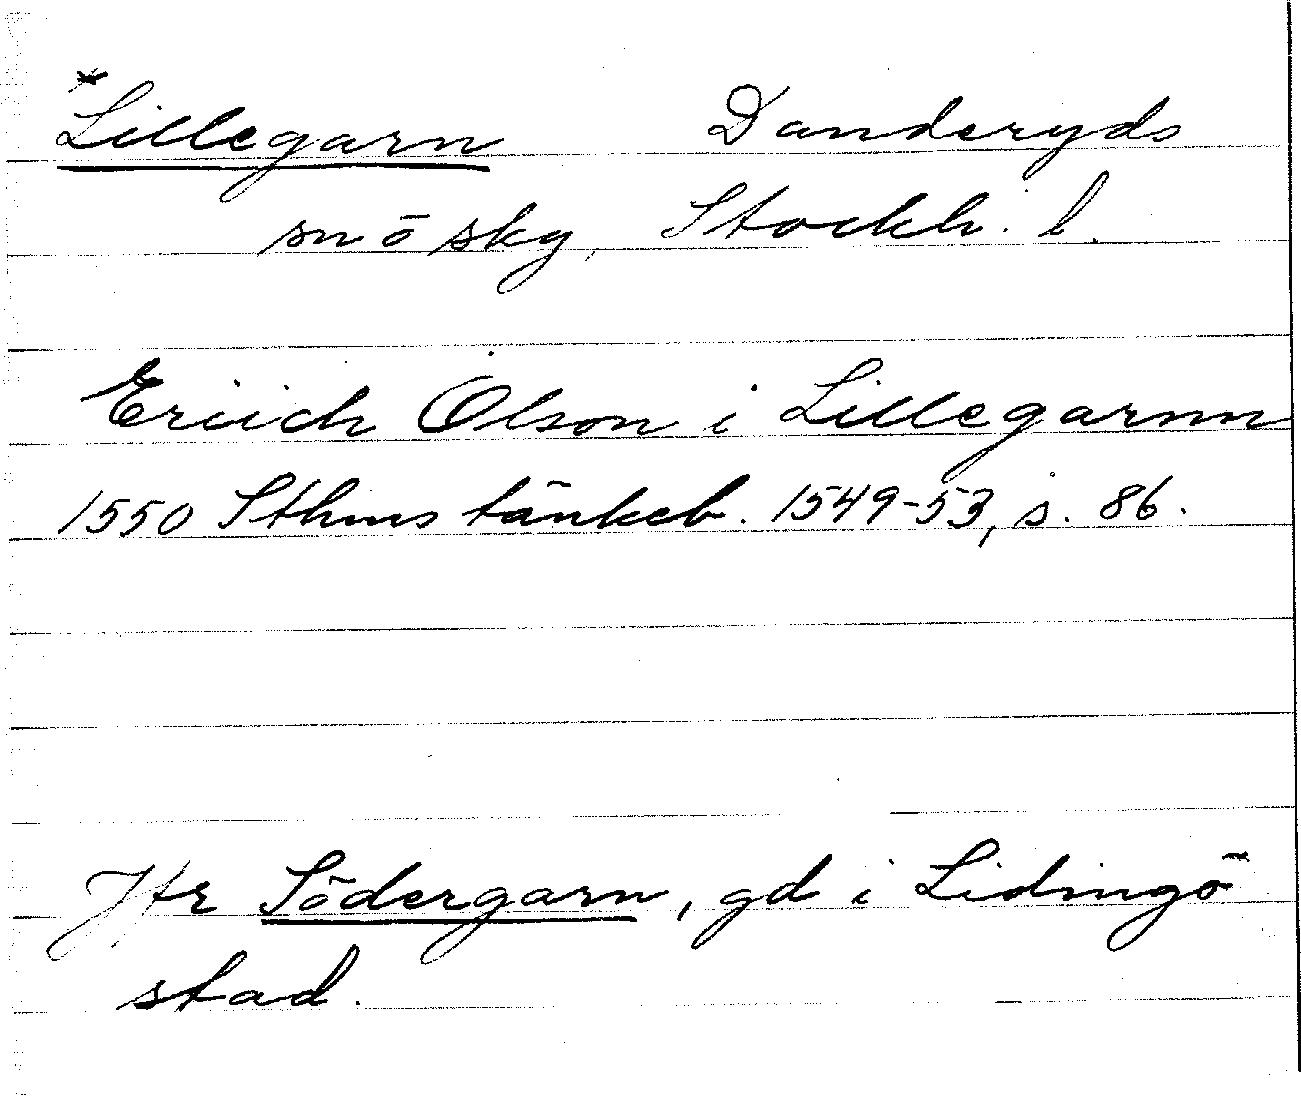 *Lillegarn Danderyds
snö sky, Stockh. l.
Eriich Olson i Lillegarnn
1550 Sthms tänkeb. 1549-53, s. 86.
Jfr Södergarn, gd i Lidingö
stad.